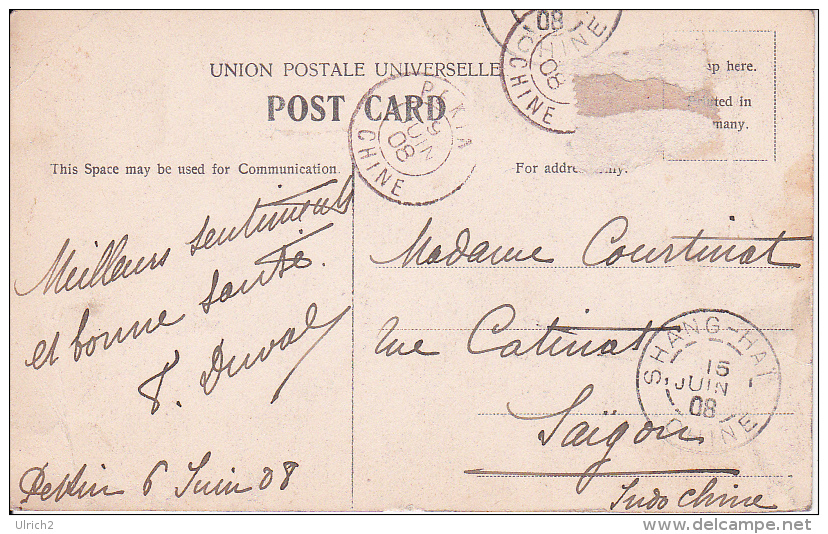 UNION POSTALE UNIVERSELLE
POST CARD
This Space may be used for Communication.
For addre
here.
in
Meilleurs sentiments
et bonne santé.
Duval
Pekin 6 Juin 08
Madame Courtinat
rue Catinat
Saïgon
Indo Chine
CHINE
08
CHINE
08
JUIN
08
CHINE
SHANG-HAI
15
JUIN
08
CHINE
Ulrich2
delcampe.net